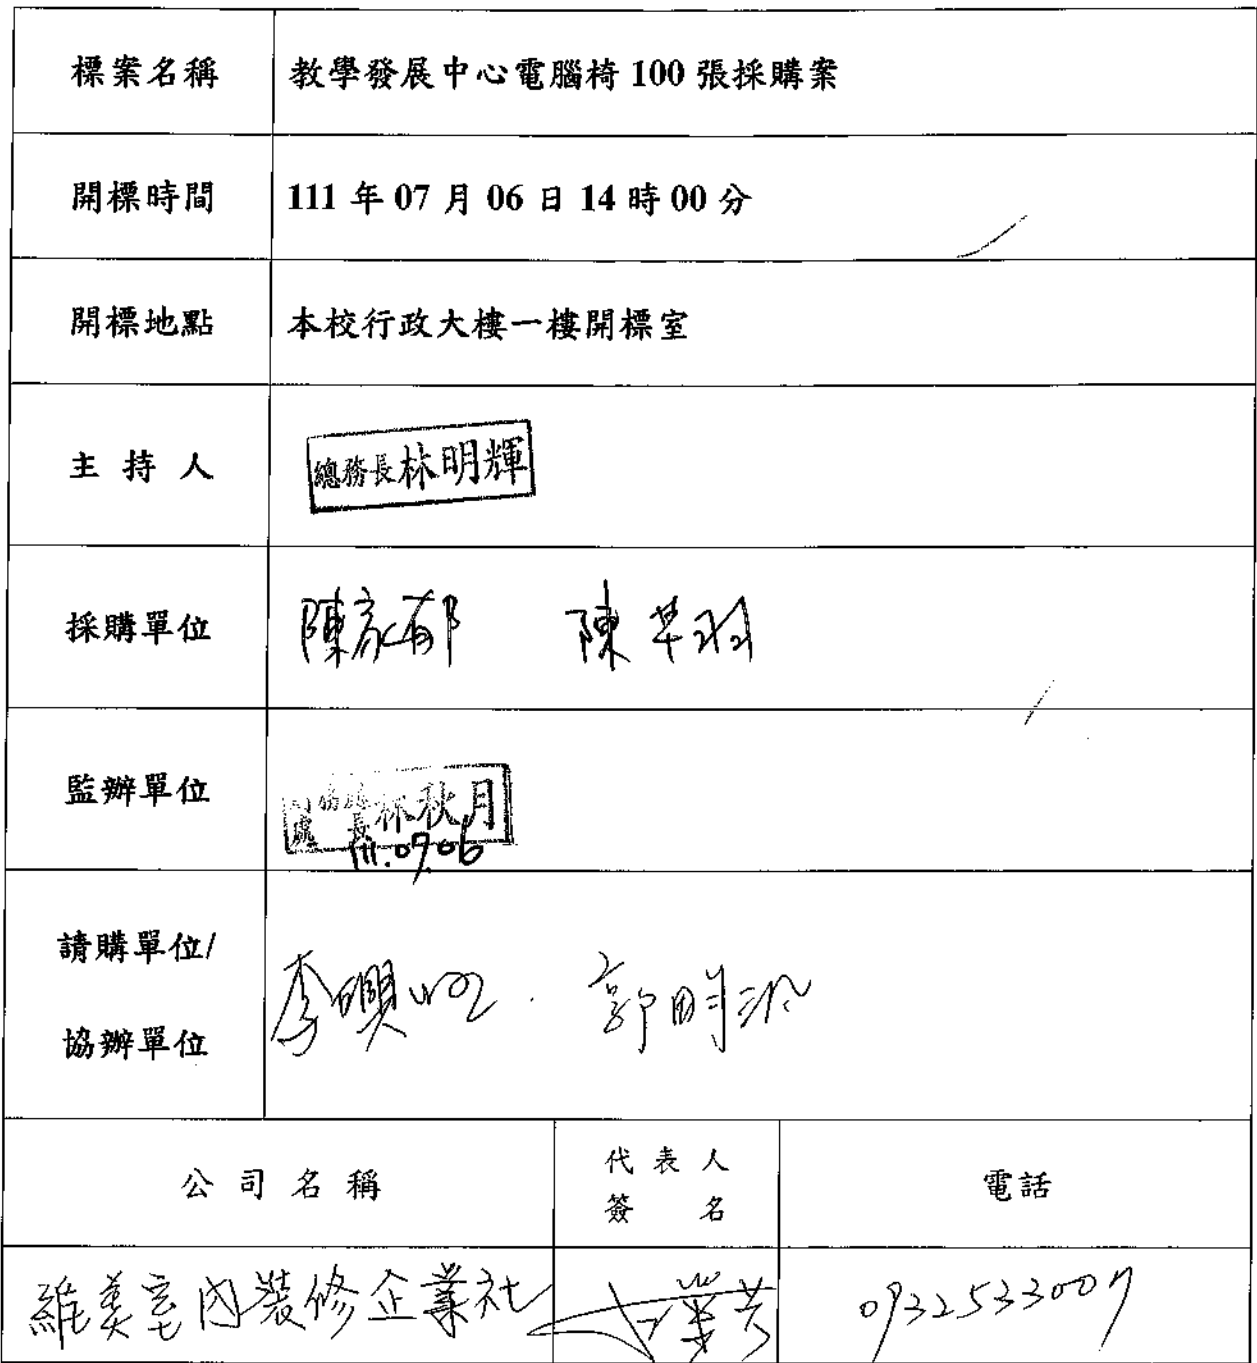 標案名稱 教學發展中心電腦椅 100 張採購案
開標時間 111 年 07 月 06 日 14 時 00 分
開標地點 本校行政大樓一樓開標室
主持人 總務長林明輝
採購單位 陳家郁 陳芊羽
監辦單位 林秋月
111.07.06
請購單位/
協辦單位
李 郭明
公司名稱 代表人 電話
簽名
維美室內裝修企業社 0932533007